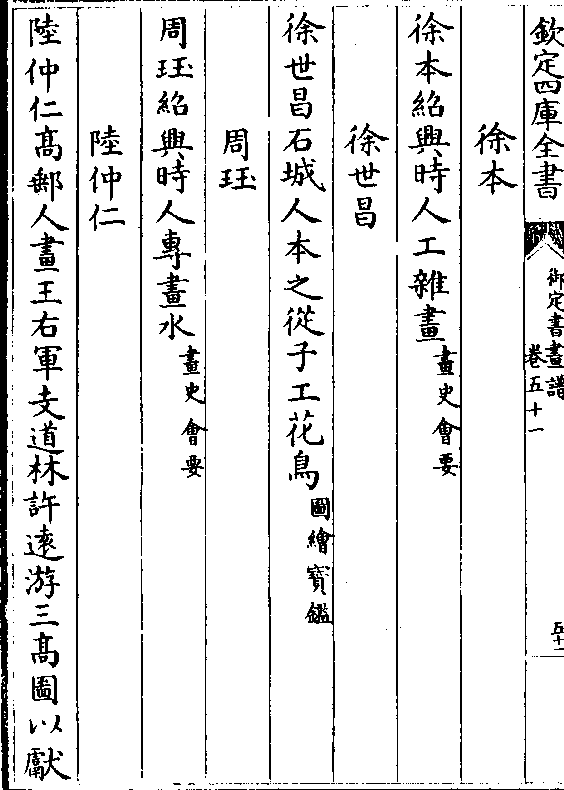 欽定四庫全書
御定書畫譜
卷五十一
五十一
徐本
徐本紹興時人工雜畫畫史會要
徐世昌
徐世昌石城人本之從子工花鳥圖繪寶鑑
周珏
周珏紹興時人專畫水畫史會要
陸仲仁
陸仲仁高郵人畫王右軍支道林許遠游三高圖以獻